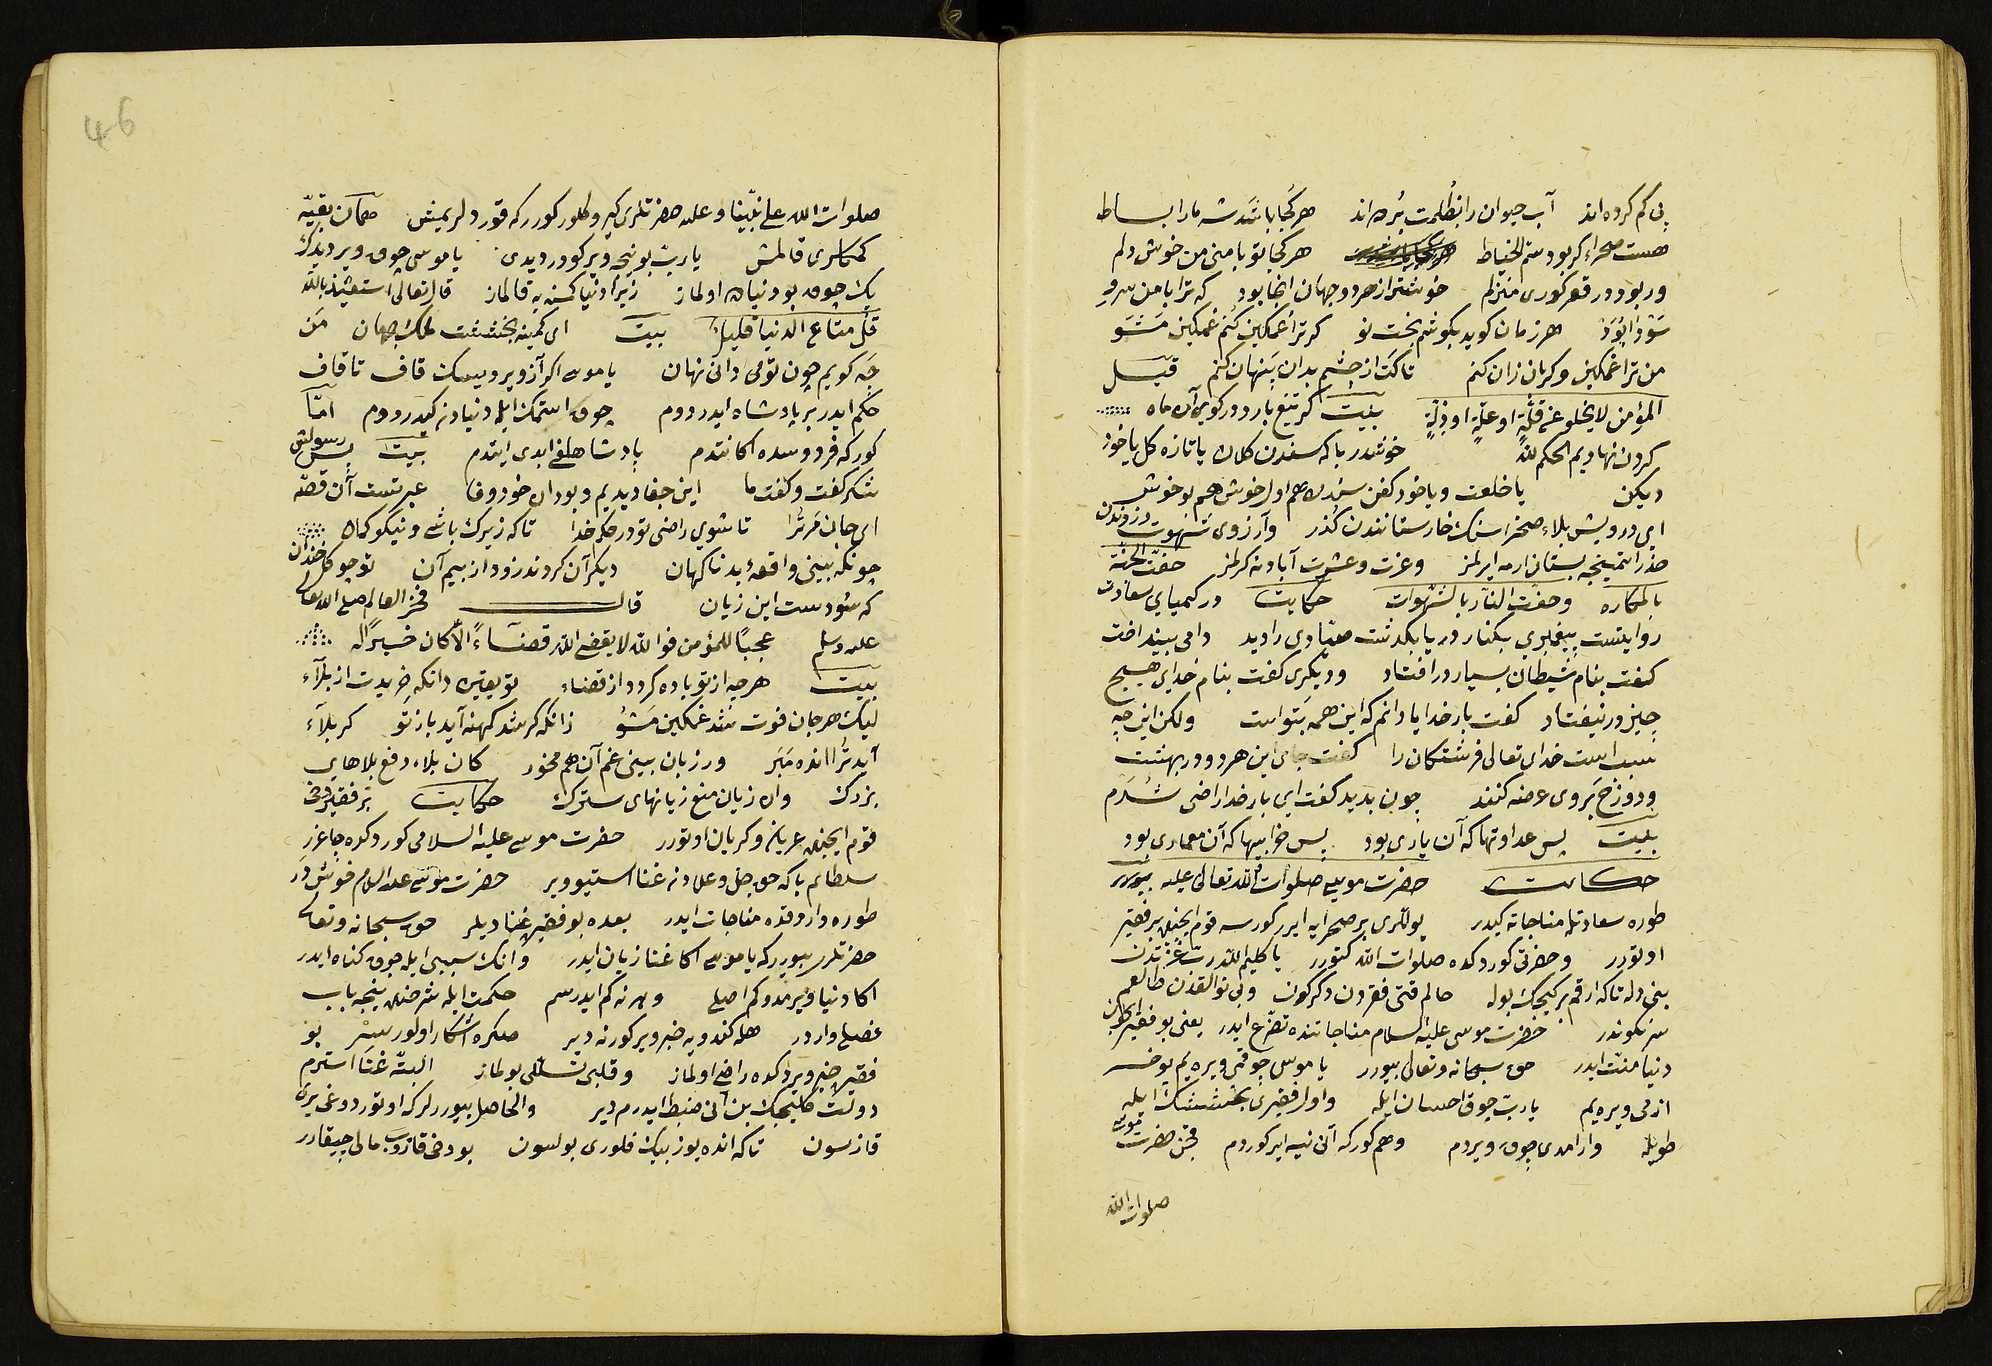 پی کم کرده اند آب حیوان را بظلمت برده اند هر کجا باشد شه ما را بساط
هست صحراء کر بود سم الخیاط هر کجا تو با منی من خوش دلم
ور بود در قعر کوری منزلم خوشتر از هر دو جهان انجا بود که ترا با من سر و
سودا بود هر زمان کوید بکوشم بخت نو کر ترا غمکین کنم غمکین مشو
من ترا غمکین و کریان زان کنم تا کت از چشم بدان پنهان کنم قیل
المؤمن لا یخلو عن قلة او علة او ذلة بیت کر تیغ بارد در کوی آن ماه
کردن نهادیم الحکم لله خوشدر باکه سندن کلان یا تازه کل یا خود
دیکن یا خلعت و یا خود کفن سندن هم اول خوش هم بو خوش
ای درویش بلاء صحراسنک خارستانندن کذر وآرزوی شهوت
حذر اتمینجه بستان ارمه ایرلمز وعزت وعشرت آبادنه کرلمز حفت الجنة
بالمکاره وحفت النار بالشهوات حکایت در کیمیای سعادت
روایتست پیغمبری بکنار دریا بکدشت صیادی را دید دامی بینداخت
کفت بنام شیطان بسیار در افتاد ودیکری کفت بنام خدای هیچ
چیز در نیفتاد کفت بار خدایا دانم که این همه بتواست ولکن این چه
سبب است خدای تعالی فرشتکان را کفت جای این هر دو در بهشت
ودوزخ بروی عرضه کنند چون بدید کفت ای بار خدا راضی شدم
بیت پس عداوتها که آن یاری بود پس خرابیها که آن معماری بود
حکایت حضرت موسی صلوات الله تعالی علیه
طوره سعادتله مناجاته کیدر یوللری بر صحرایه ایرر کورسه قوم ایچنده بر فقیر
اوتورر وحضرتی کوردکده صلوات الله کتورر یا کلیم الله رب عزتدن
بنی دله تا که ارقم برکیجک بوله حالم قتی فقردن دکرکون وبی نوالقدن طالعم
سرنکوندر حضرت موسی علیه السلام مناجاتنده تضرع ایدر یعنی بو فقیر ایچون
دنیا منت ایدر حق سبحانه وتعالی بیورر یا موسی چوقمی ویره یم یوخسه
ازمی ویره یم یا رب چوق احسان ایله و اول فقیری بخششنک ایله
طویله وارامدی چوق ویردم وهم کورکه آنی نیه ایر کوردم فچن حضرت موسی
صلوات الله
46
صلوات الله علی نبینا وعلیه حضرتلری کیرو طور کوررکه قورد لریمش همان بقیه
کمکلری قالمش یا رب بو نیجه ویرکودر دیدی یا موسی چوق ویر دیدک
بک چوق بو دنیاده اولماز زیرا دنیا کمسه یه قالماز قال تعالی استعیذ بالله
قل متاع الدنیا قلیل بیت ای کمینه بخششت ملک جهان من
چه کویم چون تو می دانی نهان یا موسی اکر آز ویردیسک قاف تا قاف
حکم ایدر بر پادشاه ایدردوم چوق استمک ایله دنیادنه کیدردوم اما
کورکه فردوسده اکا نتدم پادشاهلغی ابدی ایتدم بیت پس رسولش
شکر کفت و کفت ما این جفا دیدیم وبود ان خود وفا عبرتست آن قصه
ای جان مر ترا تا شوی راضی تو در حکم خدا تا که زیرک باشی و نیکو کمان
چونکه ببینی واقعه بد ناکهان دیکرآن کردند زرد از بیم آن تو چو کل خندان
که سودست این زیان قال فخر العالم صلی الله تعالی
علیه وسلم عجبا للمؤمن فو الله لا یقضی الله قضاء الا کان خیرا له
بیت هر چه از تو یاوه کردد از قضاء تو یقین دانکه خریدت از بلآء
لیک هر جان فوت شد غمکین مشو زانکه کر شد کهنه آید باز نو کر بلآء
آید ترا انده مبر ور زیان بینی غم آن هم مخور کان بلاء دفع بلاهای
بزرک وان زیان منع زیانهای سترک حکایت بر فقیر دخی
قوم ایچنده عریان وکریان اوتورر حضرت موسی علیه السلامی کوردکده جاغرر
سلطانم باکه حق جل وعلادنه غنا استیوویر حضرت موسی علیه السلام
طوره واردقده مناجات ایدر بعده بو فقیره غنا دیلر حق سبحانه وتعالی
حضرتلری بیوررکه یا موسی اکا غنا زیان ایدر وانک سببی ایله چوق کناه ایدر
اکا دنیا ویرمدوکم اصلح وهر نه کم ایدرسم حکمت ایله شرحنده نیجه باب
فصلی واردر هله کندویه خبر ویر کورنه دیر صکره آشکار اولور سر بو
فقیره خبر ویردکده راضی اولماز وقلبی تسلی بولماز البته غنا استرم
دولت کلیجک بن آنی ضبط ایدرم دیر والحاصل بیوررلرکه اوتوردوغی یری
قازسون تا که انده یوز بیک فلوری بولسون بو دخی قازوب مالی چیقارر